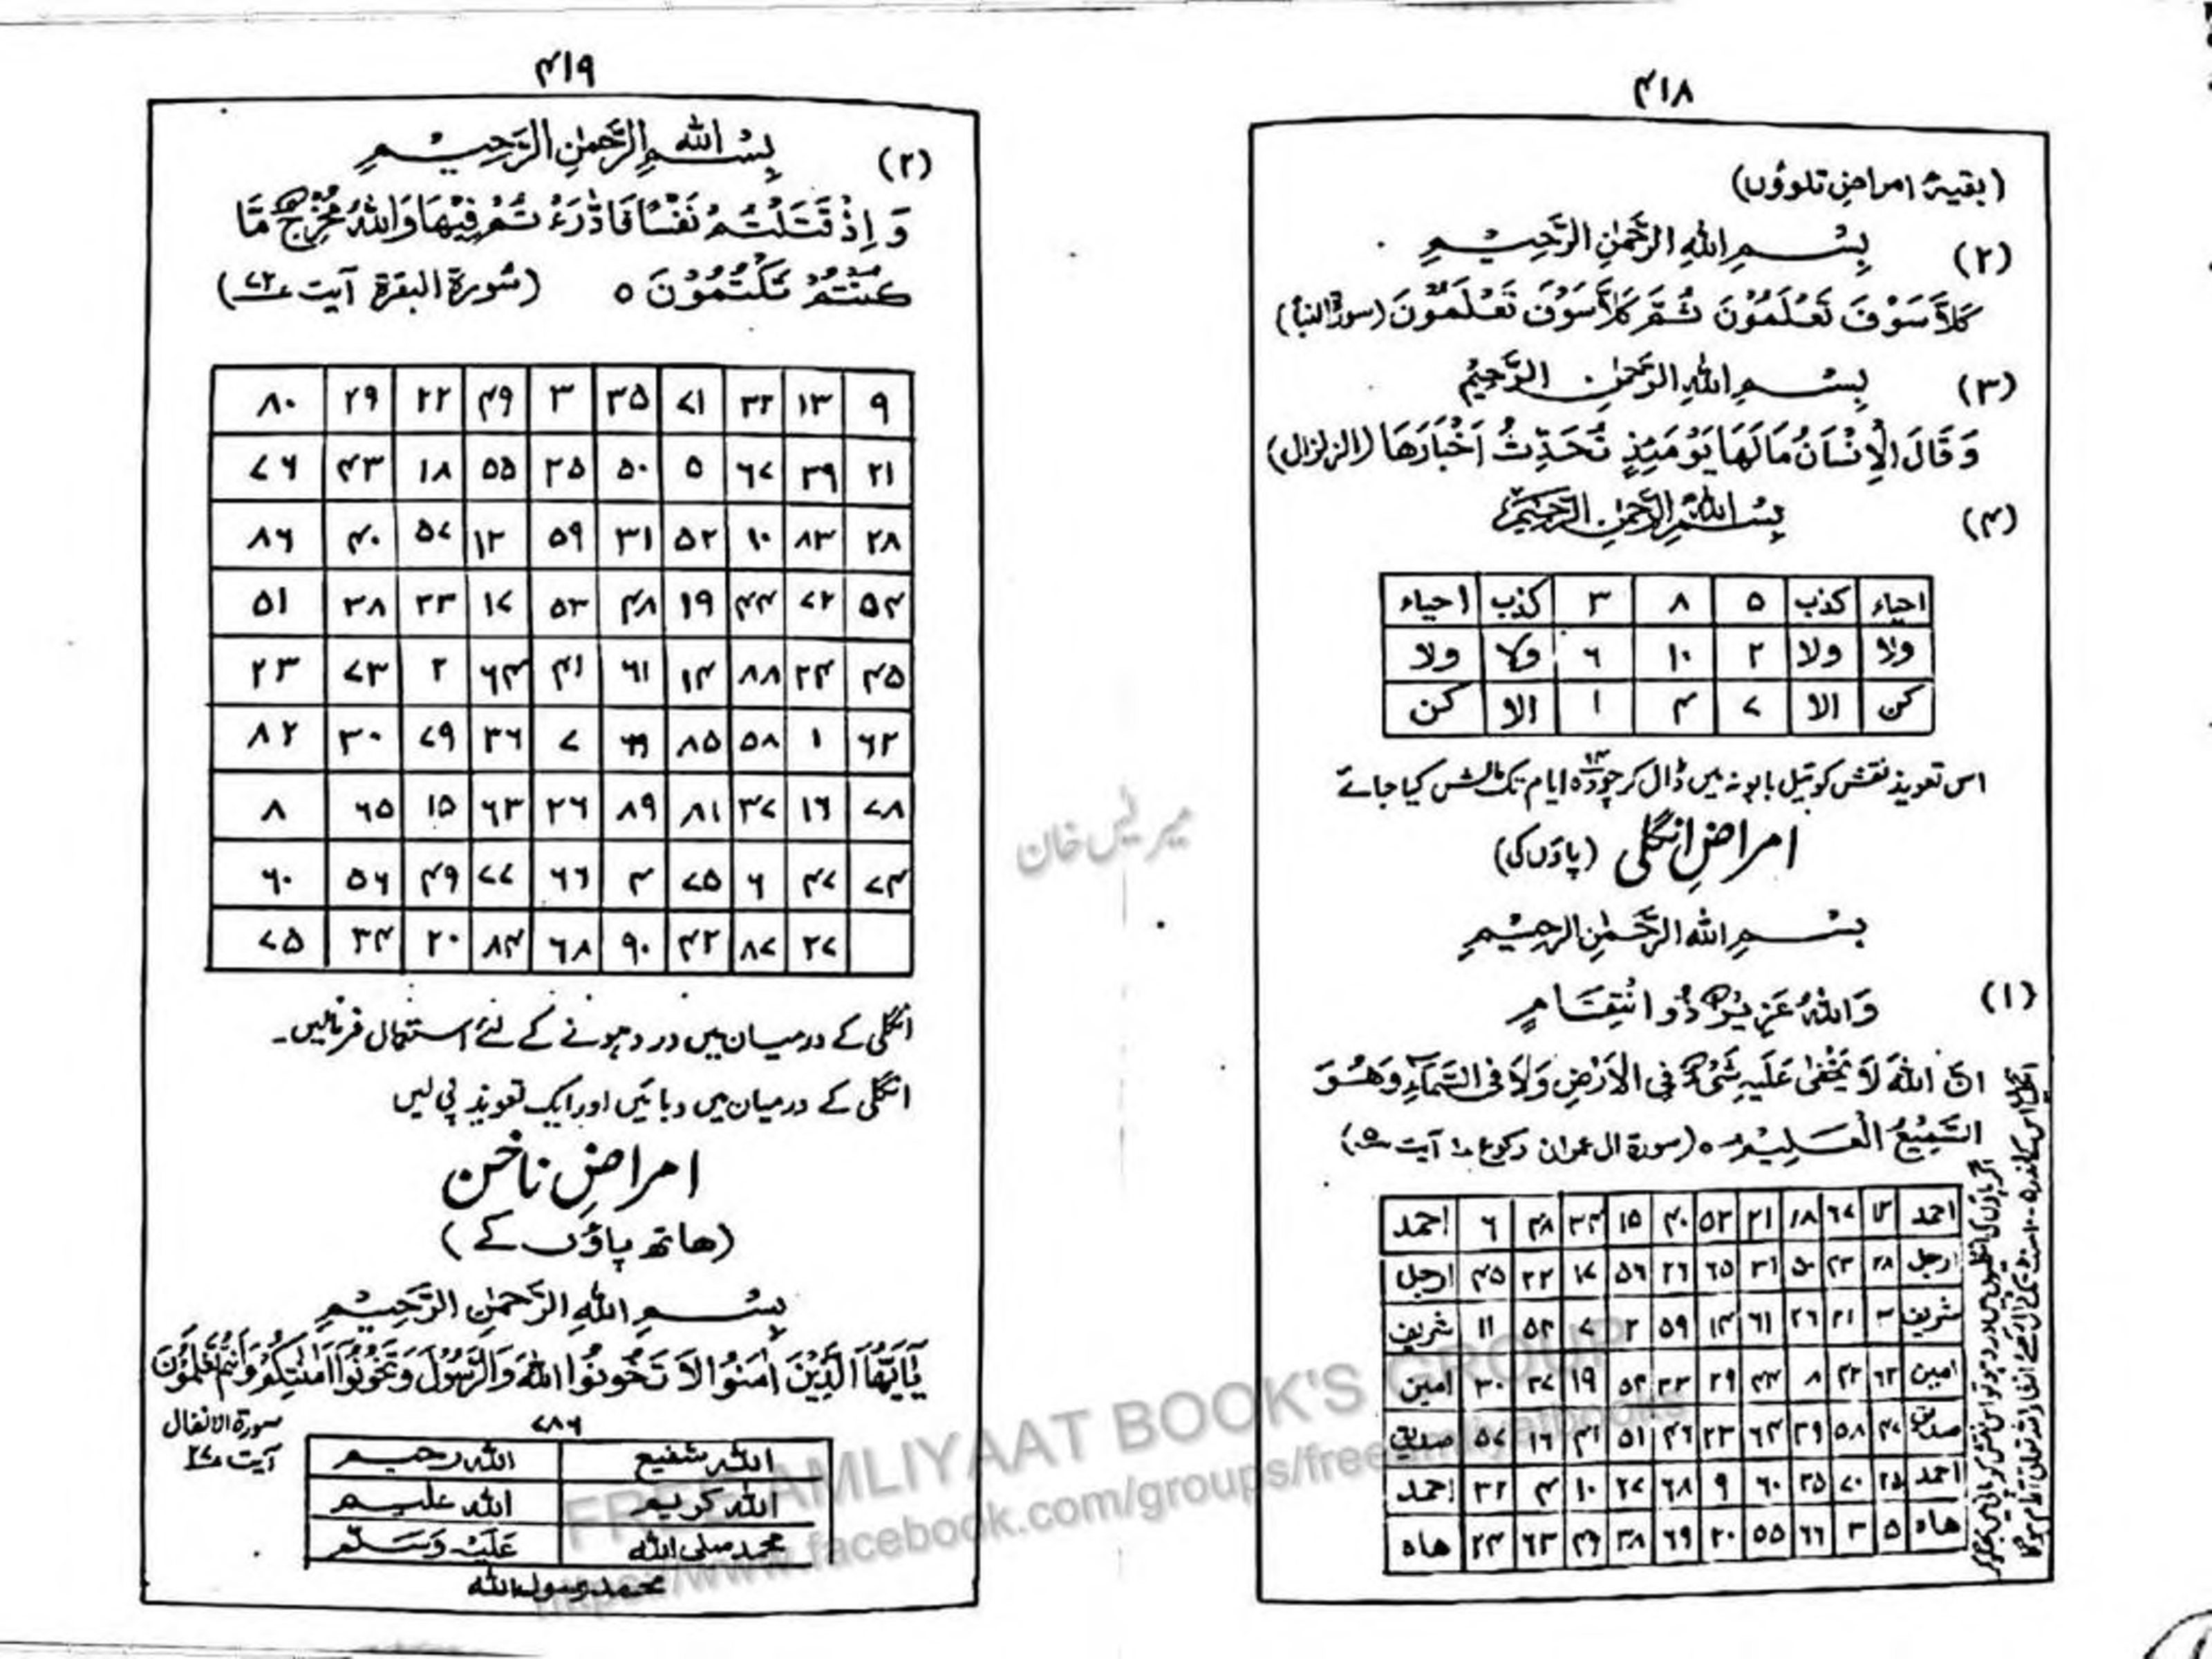 ۴۱۸
(بقیۂ امراضِ تلوؤں)
(۲) بِسْمِ اللهِ الرَّحْمٰنِ الرَّحِيْمِ
كَلَّا سَوْفَ تَعْلَمُوْنَ ثُمَّ كَلَّا سَوْفَ تَعْلَمُوْنَ (سورۃ النبأ)
(۳) بِسْمِ اللهِ الرَّحْمٰنِ الرَّحِيْمِ
وَقَالَ الْاِنْسَانُ مَالَهَا يَوْمَئِذٍ تُحَدِّثُ اَخْبَارَهَا (الزلزال)
(۴) بِسْمِ اللهِ الرَّحْمٰنِ الرَّحِيْمِ
احیاء کذب ۵ ۸ ۳ کذب احیاء
ولا ولا ۲ ۱۰ ۶ ولا ولا
کن الا ۷ ۴ ۱ الا کن
اس تعویذ نقش کو تیل بابونہ میں ڈال کر چودہ ۱۴ ایام تک مالش کیا جائے
امراضِ انگلی (پاؤں کی)
بِسْمِ اللهِ الرَّحْمٰنِ الرَّحِيْمِ
(۱) وَاللهُ عَزِيْزٌ ذُو انْتِقَامٍ
اِنَّ اللهَ لَا يَخْفٰى عَلَيْهِ شَيْءٌ فِي الْاَرْضِ وَلَا فِي السَّمَآءِ وَهُوَ
السَّمِيْعُ الْعَلِيْمُ ٥ (سورۃ ال عمران رکوع ۱ آیت ۵)
احمد ۱۲ ۶۷ ۱۸ ۲۱ ۵۳ ۴۰ ۱۵ ۳۴ ۴۸ ۶ احمد
ارجل ۲۸ ۲۳ ۵۰ ۳۱ ۶۵ ۲۶ ۵۶ ۱۷ ۲۲ ۴۵ ارجل
شریف ۶۱ ۱۴ ۵۹ ۲ ۷ ۵۲ ۱۱ شریف
امین ۶۲ ۴۲ ۸ ۴۴ ۲۹ ۳۳ ۵۴ ۱۹ ۳۷ ۳۰ امین
صدیق ۴۷ ۵۸ ۳۹ ۶۴ ۲۳ ۴۶ ۵۱ ۴۱ ۱۶ ۵۷ صدیق
احمد ۲۵ ۷۰ ۳۵ ۶۰ ۹ ۶۸ ۲۷ ۱۰ ۴ ۳۲ احمد
ھاہ ۵ ۳ ۶۶ ۵۵ ۲۰ ۶۹ ۳۸ ۴۹ ۶۳ ۲۴ ھاہ
اگر پاؤں کی انگلیوں میں درد ہو تو اس نقش کو پانی میں بھگو کر
۴۱۹
(۲) بِسْمِ اللهِ الرَّحْمٰنِ الرَّحِيْمِ
وَ اِذْ قَتَلْتُمْ نَفْسًا فَادّٰرَءْتُمْ فِيْهَا وَاللهُ مُخْرِجٌ مَّا
كُنْتُمْ تَكْتُمُوْنَ ٥ (سُورۃ البقرۃ آیت ۷۲)
۹ ۱۳ ۳۲ ۷۱ ۳۵ ۳ ۴۹ ۲۲ ۲۹ ۸۰
۲۱ ۳۹ ۶۷ ۵ ۵۰ ۲۵ ۵۵ ۱۸ ۴۳ ۷۶
۲۸ ۸۳ ۱۰ ۵۲ ۳۱ ۵۹ ۱۲ ۵۷ ۴۰ ۸۶
۵۴ ۷۲ ۴۴ ۱۹ ۴۸ ۵۳ ۱۷ ۳۳ ۳۸ ۵۱
۴۵ ۲۴ ۸۸ ۱۴ ۶۱ ۴۱ ۶۴ ۲ ۷۳ ۲۳
۶۲ ۱ ۵۸ ۸۵ ۷ ۳۶ ۷۹ ۳۰ ۸۲
۷۸ ۱۶ ۳۷ ۸۱ ۸۹ ۲۶ ۶۳ ۱۵ ۶۵ ۸
۷۴ ۴۷ ۶ ۷۵ ۴ ۶۶ ۷۷ ۴۹ ۵۶ ۶۰
۲۷ ۸۷ ۴۲ ۹۰ ۶۸ ۸۴ ۲۰ ۳۴ ۷۵
انگلی کے درمیان میں درد ہونے کے لئے استعمال فرمائیں۔
انگلی کے درمیان میں دبائیں اور ایک تعویذ پی لیں
امراضِ ناخن
(ھاتھ پاؤں کے)
بِسْمِ اللهِ الرَّحْمٰنِ الرَّحِيْمِ
يٰٓاَيُّهَا الَّذِيْنَ اٰمَنُوْا لَا تَخُوْنُوا اللهَ وَالرَّسُوْلَ وَتَخُوْنُوْٓا اَمٰنٰتِكُمْ وَاَنْتُمْ تَعْلَمُوْنَ
سورۃ الانفال
آیت ۲۷
۷۸۶
اللہ شفیع اللہ رحیم
اللہ کریم اللہ علیم
محمد صلی اللہ عَلَيْهِ وَسَلَّم
محمد رسول اللہ
FREE AMLIYAAT BOOK'S GROUP
https://www.facebook.com/groups/freeamliyatbooks